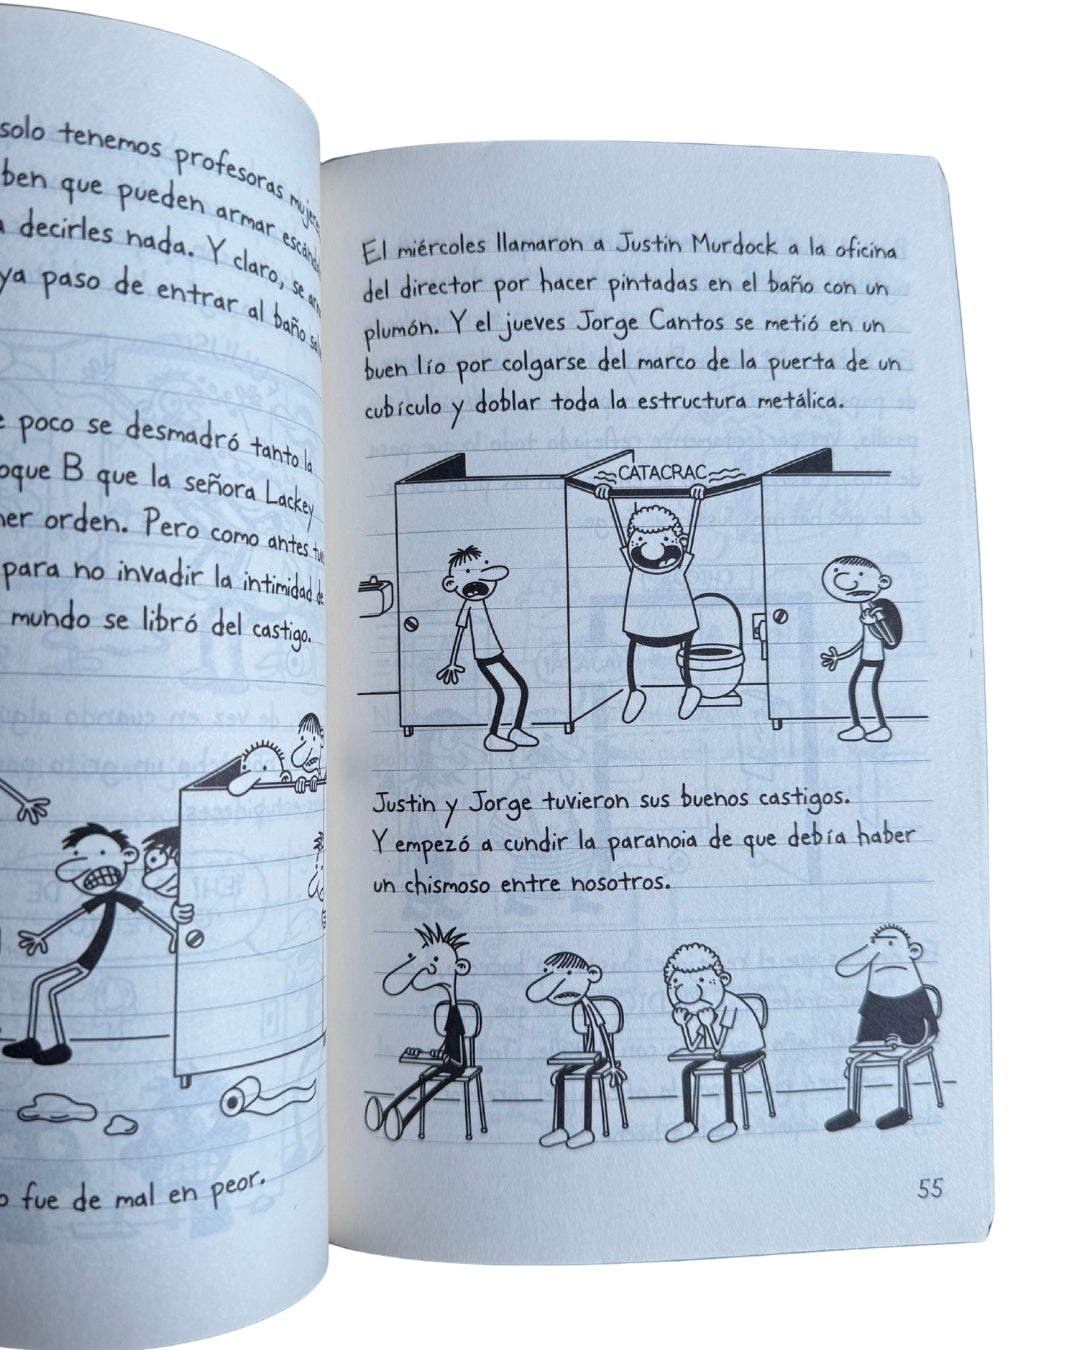 solo tenemos profesoras
que pueden armar
decirles nada. Y claro, se
ya paso de entrar al baño
poco se desmadró tanto la
B que la señora Lackey
orden. Pero como antes
para no invadir la intimidad de
mundo se libró del castigo.
fue de mal en peor.
El miércoles llamaron a Justin Murdock a la oficina
del director por hacer pintadas en el baño con un
plumón. Y el jueves Jorge Cantos se metió en un
buen lío por colgarse del marco de la puerta de un
cubículo y doblar toda la estructura metálica.
CATACRAC
Justin y Jorge tuvieron sus buenos castigos.
Y empezó a cundir la paranoia de que debía haber
un chismoso entre nosotros.
55